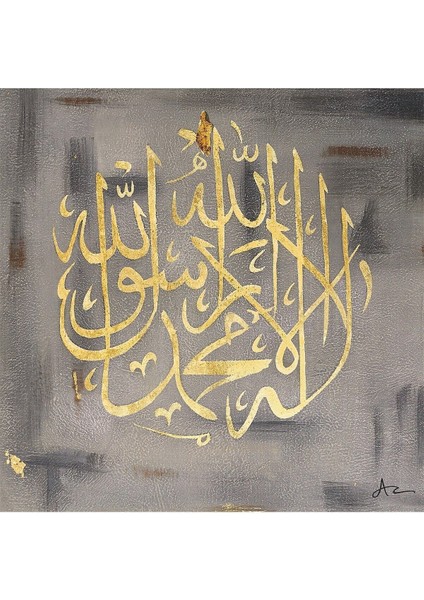 لا إله إلا الله محمد رسول الله
Az